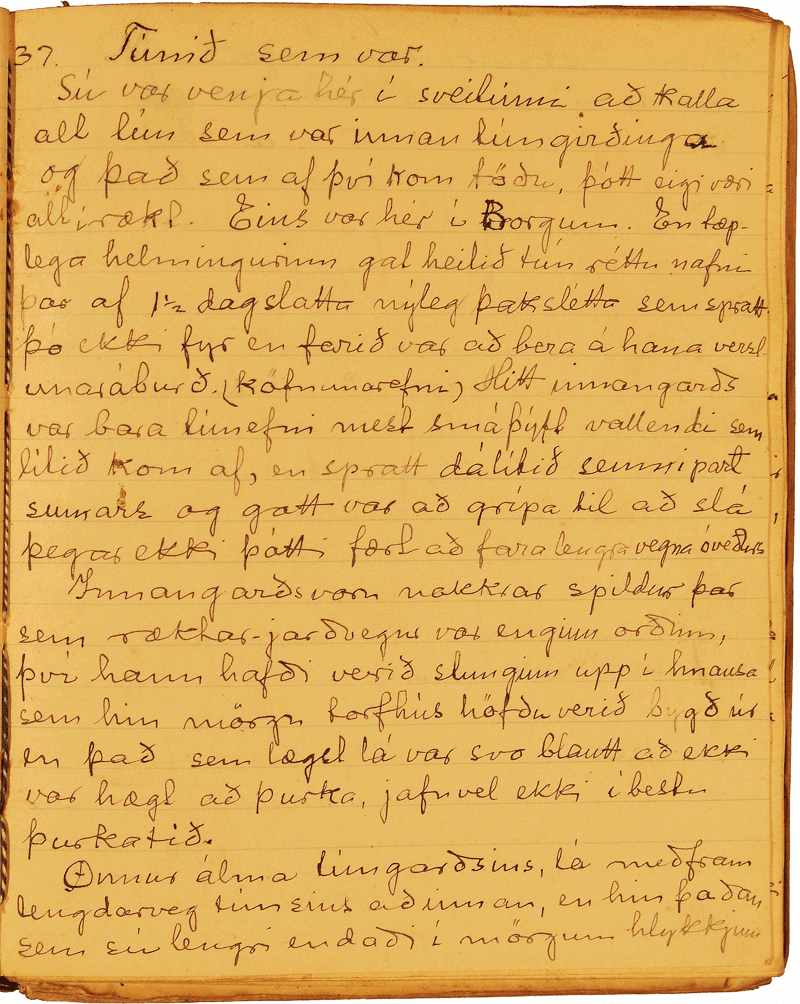 37. Túnið sem var.
Sú var venja hér í sveitinni að kalla
allt tún sem var innan túngirðinga
og það sem af því kom töðu, þótt eigi væri
allt í rækt. Eins var hér í Borgum. En tæp-
lega helmingurinn gat heitið tún réttu nafni
þar af 1½ dagslátta nýleg þakslétta sem spratt
þó ekki fyr en farið var að bera á hana verzl
unaráburð. (köfnunarefni) Hitt innangarðs
var bara túnefni mest smáþýft vallendi sem
lítið kom af, en spratt dálítið seinnipart
sumars og gott var að grípa til að slá
þegar ekki þótti fært að fara lengra vegna óveðurs
Innangarðs voru nokkrar spildur þar
sem ræktar-jarðvegur var enginn orðinn,
því hann hafði verið stunginn upp í hnausa
sem hin mörgu torfhús höfðu verið bygð úr
en það sem lægst lá var svo blautt að ekki
var hægt að þurka, jafnvel ekki í bestu
þurkatíð.
Önnur álma túngarðsins, lá meðfram
lengdarveg túnsins að innan, en hin þaðan
sem sú lengri endaði í mörgum hlykkjum